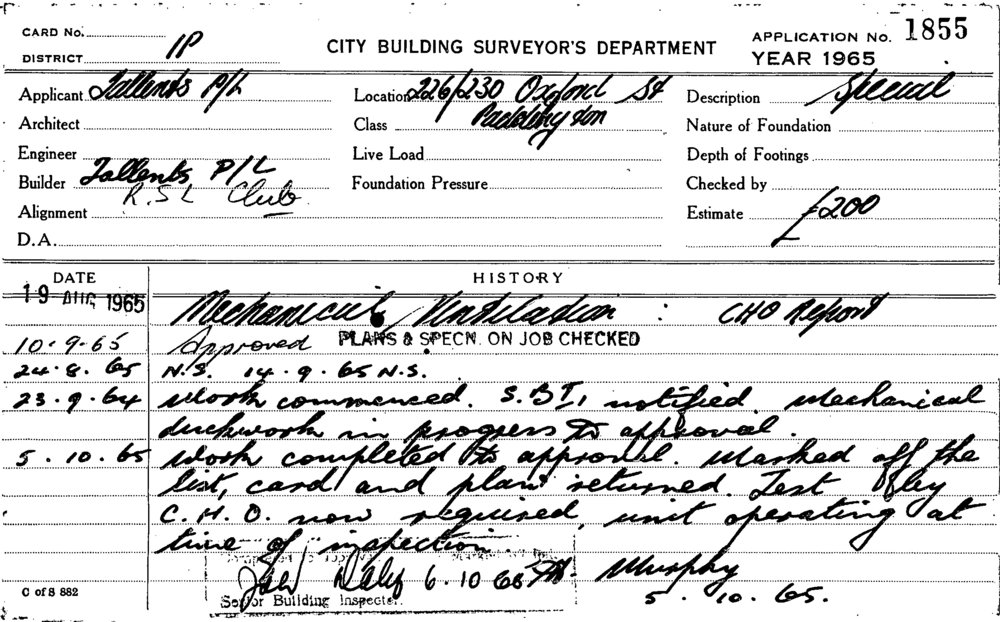 CARD No.
DISTRICT 1P
CITY BUILDING SURVEYOR'S DEPARTMENT
APPLICATION No. 1855
YEAR 1965
Applicant Tallents P/L
Location 226/230 Oxford St
Description Special
Architect
Class Paddington
Nature of Foundation
Engineer
Live Load
Depth of Footings
Builder Tallents P/L
Foundation Pressure
Checked by
R.S.L Club
Alignment
Estimate £200
D.A.
DATE HISTORY
19 AUG 1965 Mechanical Ventilation : CHO Report
10-9-65 Approved PLANS & SPECN. ON JOB CHECKED
24.8.65 N.S. 14.9.65 N.S.
23.9.64 Work commenced. S.B.I. notified. Mechanical
duckwork in progress to approval.
5.10.65 Work completed to approval. Marked off the
list, card and plan returned. Test by
C.H.O. now required, unit operating at
time of inspection.
6.10.65
Murphy
Senior Building Inspector.
5.10.65.
C of S 882